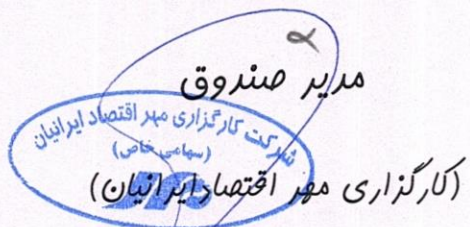 مدیر صندوق
شرکت کارگزاری مهر اقتصاد ایرانیان
(سهامی خاص)
(کارگزاری مهر اقتصاد ایرانیان)